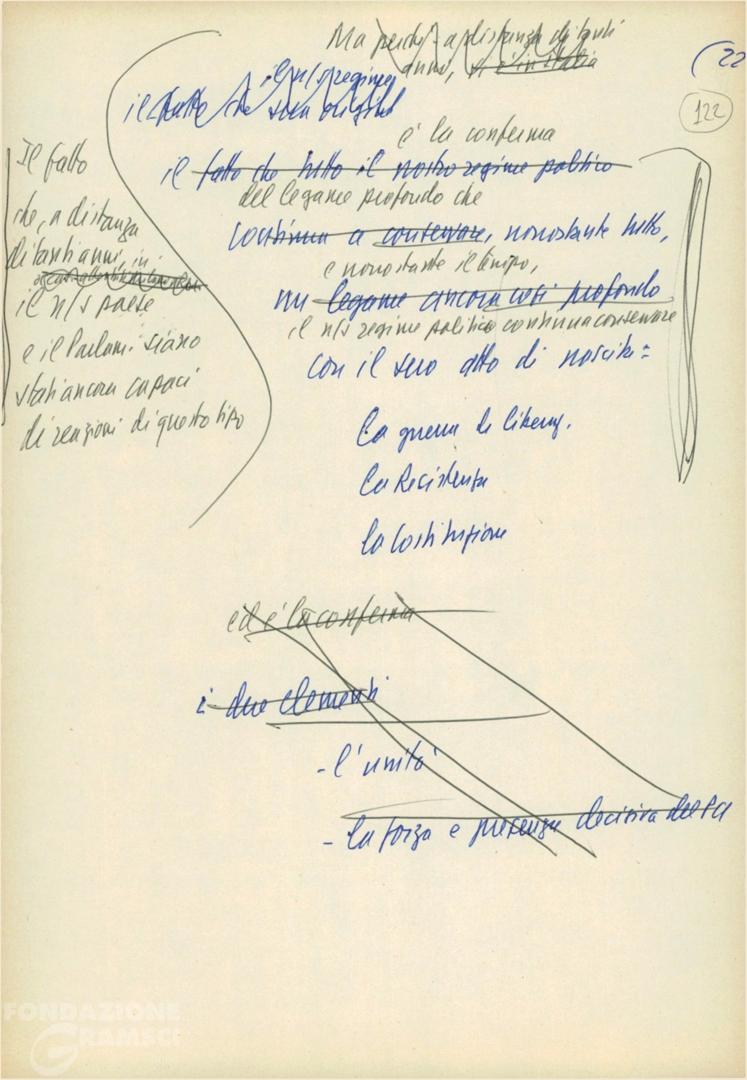 Ma perché, a distanza di tanti
anni, si è in Italia
(22
122
il n/s regime
il fatto che sua origine
è la conferma
il fatto che tutto il nostro regime politico
del legame profondo che
continua a conservare, nonostante tutto,
e nonostante il tempo,
un legame ancora così profondo
il n/s regime politico continua conservare
con il suo atto di nascita:
la guerra di liberaz.
la Resistenza
la Costituzione
Il fatto
che, a distanza
di tanti anni, in
il n/s paese
e il Parlam. siano
stati ancora capaci
di reazioni di questo tipo
ed è la conferma
i due elementi
- l'unità
- la forza e presenza decisiva del PCI
FONDAZIONE
GRAMSCI